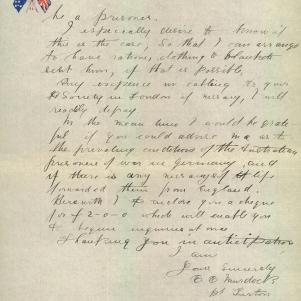 be a prisoner.
I especially desire to know if
this is the case, so that I can arrange
to have rations, clothing & blankets
sent him, if that is possible,
Any expense in cabling to your
Society in London if necessary, I will
readily defray.
In the mean time I would be grate
ful if you could advise me as to
the prevailing conditions of the Australian
prisoners of war in Germany, and
if there is any necessarys of life
forwarded them from England.
Herewith I enclose you a cheque
for £2-0-0 which will enable you
to begin inquiries at once
Thanking you in anticipation
I am
Yours Sincerely
Murdoch